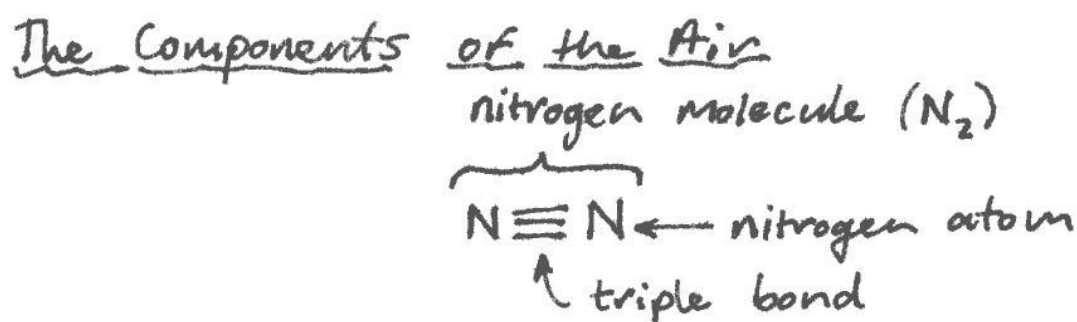 The Components of the Air
nitrogen molecule (N₂)
N≡N ← nitrogen atom
triple bond